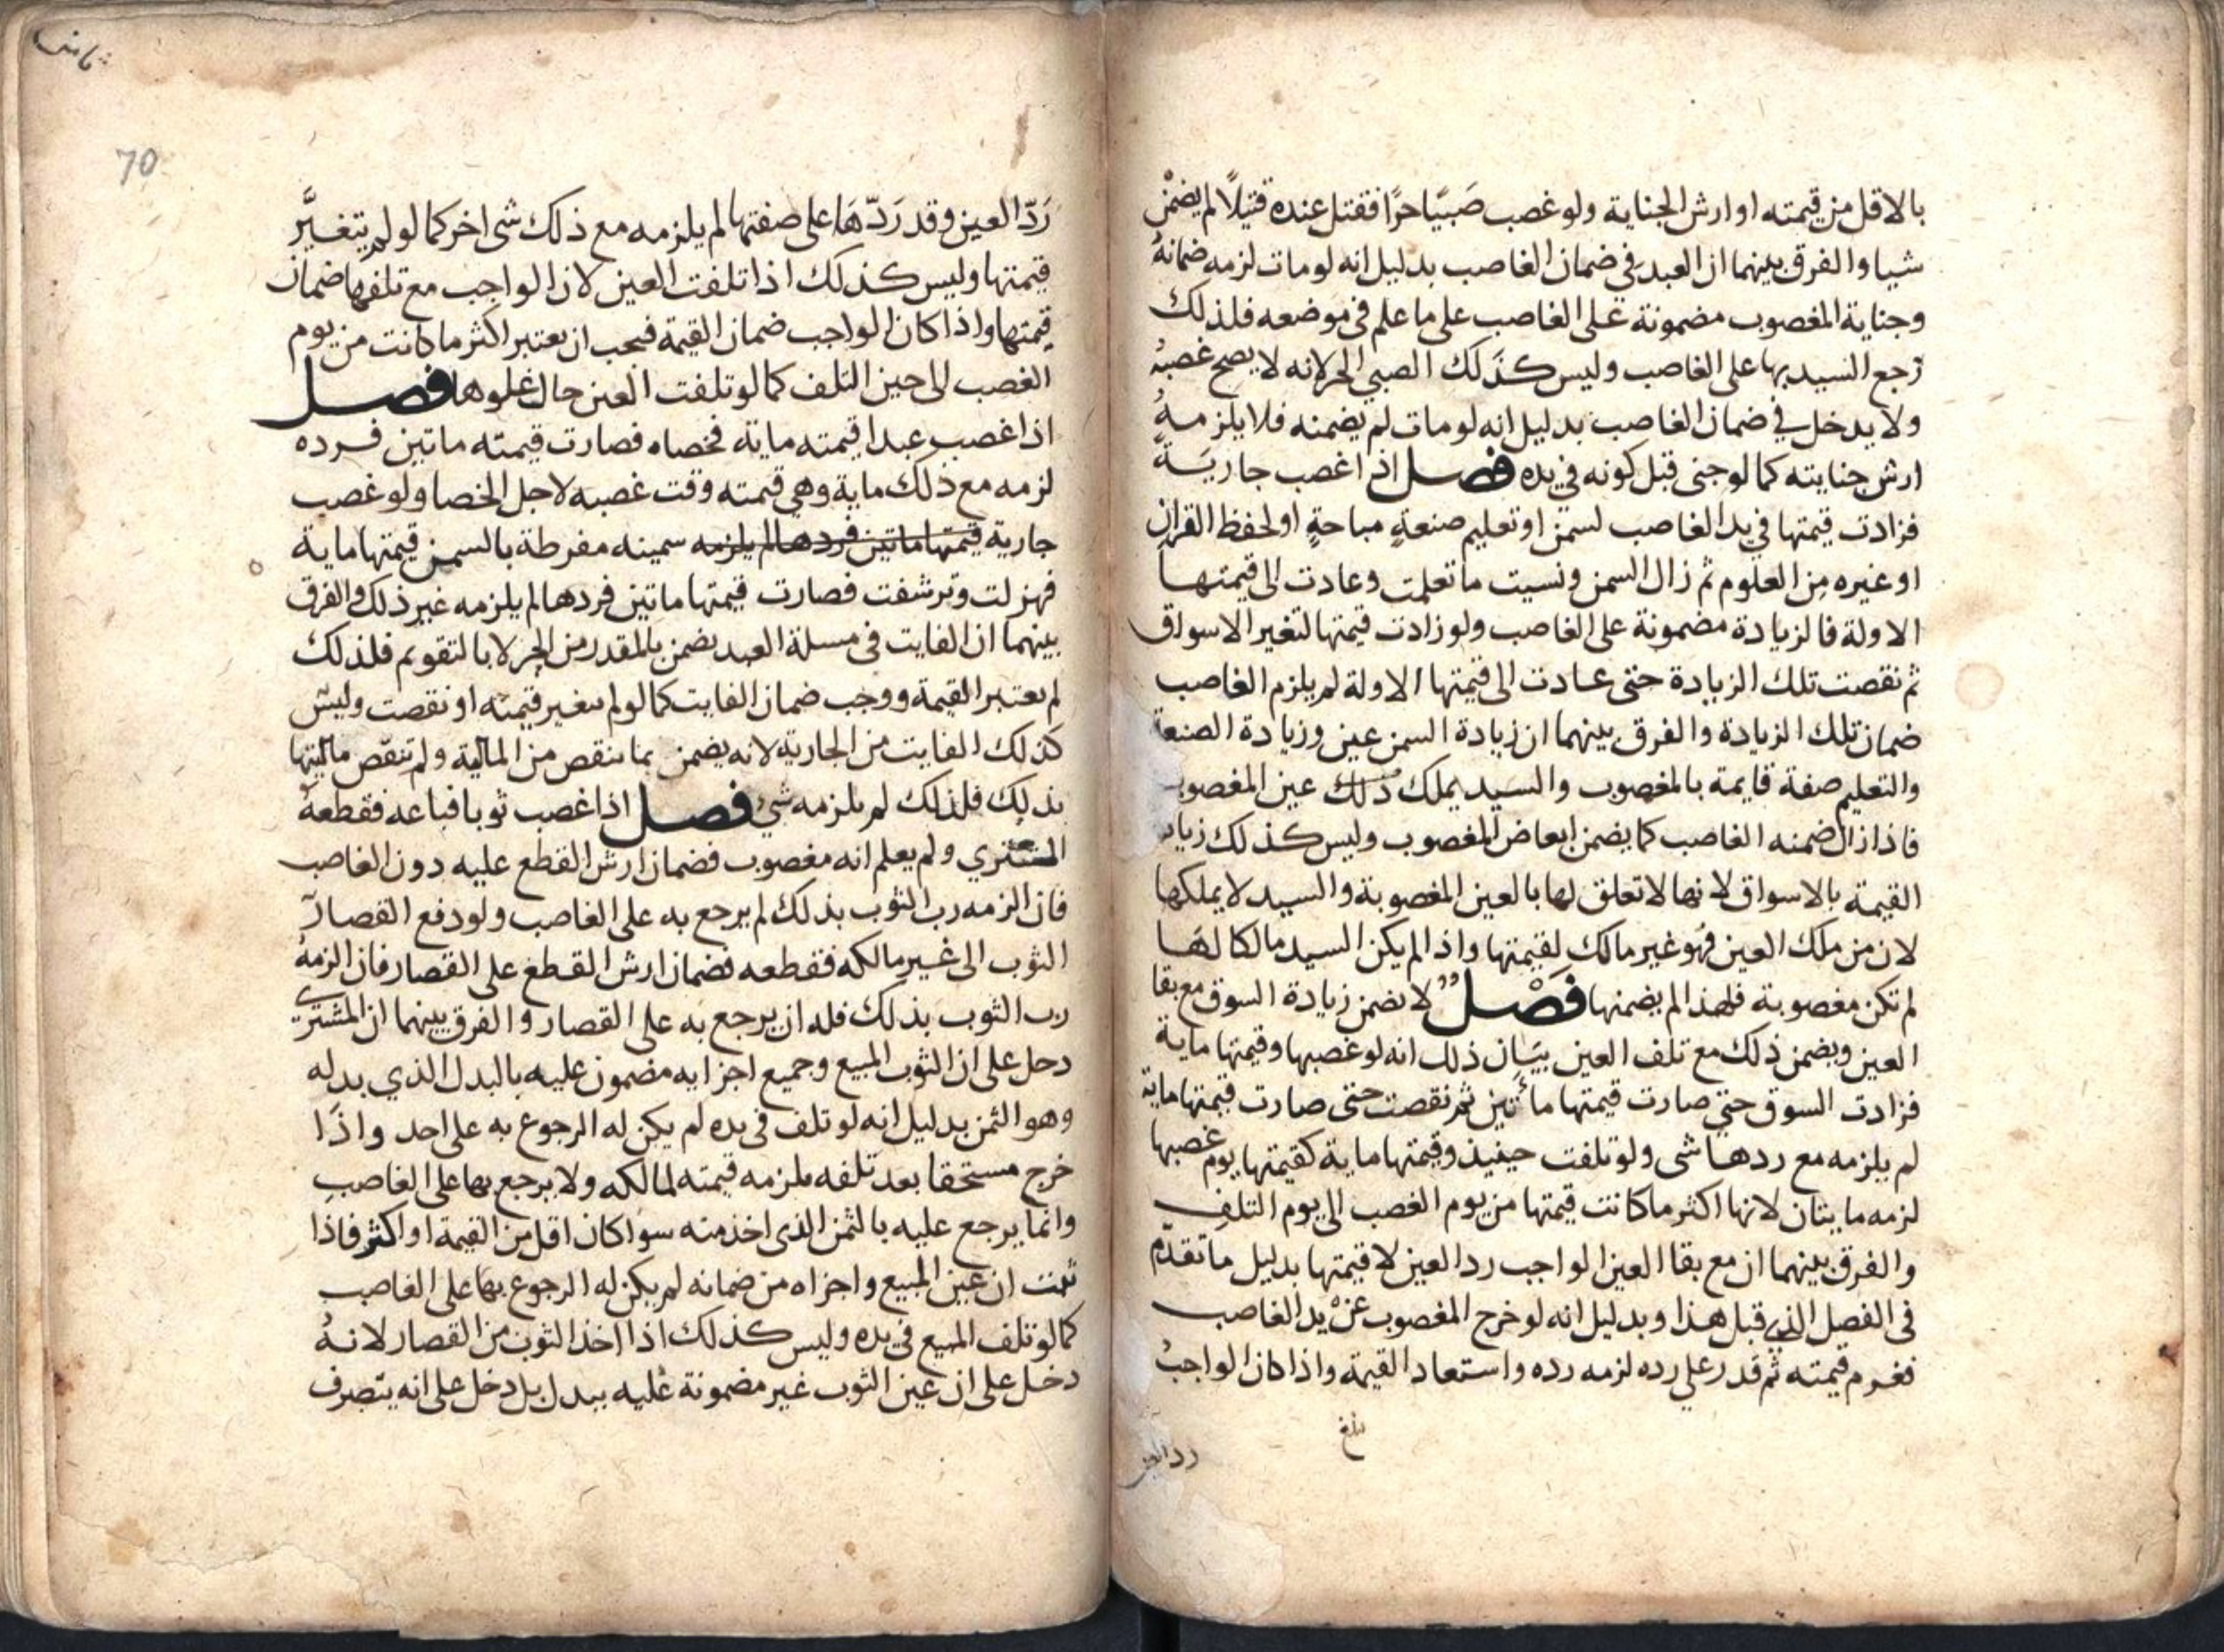 بالاقل من قيمته او ارش الجناية ولو غصب صَبيًا حرًا فقتل عنده قتيلًا لم يضمْن
شيا والفرق بينهما ان العبد في ضمان الغاصب بدليل انه لو مات لزمه ضمانهُ
وجناية المغصوب مضمونة على الغاصب على ما علم في موضعه فلذلك
رجع السيد بها على الغاصب وليس كذَلك الصبي الحر لانه لا يصح غصبهُ
ولا يدخل في ضمان الغاصب بدليل انه لو مات لم يضمنه فلا يلزمهُ
ارش جنايته كما لو جنى قبل كونه في يده فصل اذا غصب جاريَةً
فزادت قيمتها في يد الغاصب لسمن او تعليم صنعةٍ مباحةٍ او لحفظ القران
او غيره من العلوم ثم زال السمن ونسيت ما تعلمت وعادت الى قيمتها
الاولة فالزيادة مضمونة على الغاصب ولو زادت قيمتها لتغير الاسواق
ثم نقصت تلك الزيادة حتى عادت الى قيمتها الاولة لم يلزم الغاصب
ضمان تلك الزيادة والفرق بينهما ان زيادة السمن عين وزيادة الصنعة
والتعليم صفة قايمة بالمغصوب والسيد يملك ذلك عين المغصوب
فاذا زال ضمنه الغاصب كما يضمن ابعاض المغصوب وليس كذلك زياد
القيمة بالاسواق لانها لا تعلق لها بالعين المغصوبة والسيد لا يملكها
لان من ملك العين فهو غير مالك لقيمتها واذا لم يكن السيد مالكا لهَا
لم تكن مغصوبة فلهذا لم يضمنها فَصْل لا يضمن زيادة السوق مع بقا
العين ويضمن ذلك مع تلف العين بيَان ذلك انه لو غصبها وقيمتها ماية
فزادت السوق حتي صارت قيمتها مأتين ثم نقصت حتى صارت قيمتها ماية
لم يلزمه مع ردها شى ولو تلفت حينيذ وقيمتها ماية كقيمتها يوم غصبها
لزمه مايتان لانها اكثر ما كانت قيمتها من يوم الغصب الى يوم التلفِ
والفرق بينهما ان مع بقا العين الواجب رد العين لا قيمتها بدليل ما تقدّم
في الفصل الذي قبل هذا وبدليل انه لو خرج المغصوب عنْ يد الغاصب
فغرم قيمته ثم قدر على رده لزمه رده واستعاد القيمة واذا كان الواجبُ
بلغ
رد العين
70
رَدّ العين وقد رَدّهَا على صفتها لم يلزمه مع ذلك شى اخر كما لو لم يتغيَّر
قيمتها وليس كذلك اذا تلفت العين لان الواجب مع تلفها ضمان
قيمتها واذا كان الواجب ضمان القيمة فيجب ان يعتبر اكثر ما كانت من يوم
الغصب الى حين التلف كما لو تلفت العين حال غلوها فصل
اذا غصب عبدا قيمته ماية فخصاه فصارت قيمته ماتين فرده
لزمه مع ذلك ماية وهي قيمته وقت غصبه لاجل الخصا ولو غصب
جارية قيمتها ماتين فردها لم يلزمه سمينه مفرطة بالسمن قيمتها ماية
فهزلت وترشفت فصارت قيمتها ماتين فردها لم يلزمه غير ذلك والفرق
بينهما ان الفايت في مسلة العبد يضمن بالمقدر من الحر لا بالتقويم فلذلك
لم يعتبر القيمة ووجب ضمان الفايت كما لو لم تتغير قيمته او نقصت وليس
كذلك الفايت من الجارية لانه يضمن بما ينقص من المالية ولم تنقص ماليتها
بذلك فلذلك لم يلزمه شيٌ فصل اذا غصب ثوبا فباعه فقطعهُ
المشتري ولم يعلم انه مغصوب فضمان ارش القطع عليه دون الغاصب
فان الزمه رب الثوب بذلك لم يرجع به على الغاصب ولو دفع القصار
الثوب الى غير مالكه فقطعه فضمان ارش القطع على القصار فان الزمهُ
رب الثوب بذلك فله ان يرجع به على القصار والفرق بينهما ان المشتري
دخل على ان الثوب المبيع وجميع اجزايه مضمون عليه بالبدل الذي بدله
وهو الثمن بدليل انه لو تلف في يده لم يكن له الرجوع به على احد واذَا
خرج مستحقا بعد تلفه يلزمه قيمته لمالكه ولا يرجع بها على الغاصبِ
وانما يرجع عليه بالثمن الذى اخذ منه سوا كان اقل من القيمة او اكثر فاذا
ثبت ان عين المبيع واجزاه من ضمانه لم يكن له الرجوع بها على الغاصب
كما لو تلف المبيع في يده وليس كذلك اذا اخذ الثوب من القصار لانهُ
دخل على ان عين الثوب غير مضمونة عليه ببدل بل دخل على انه يتصرف